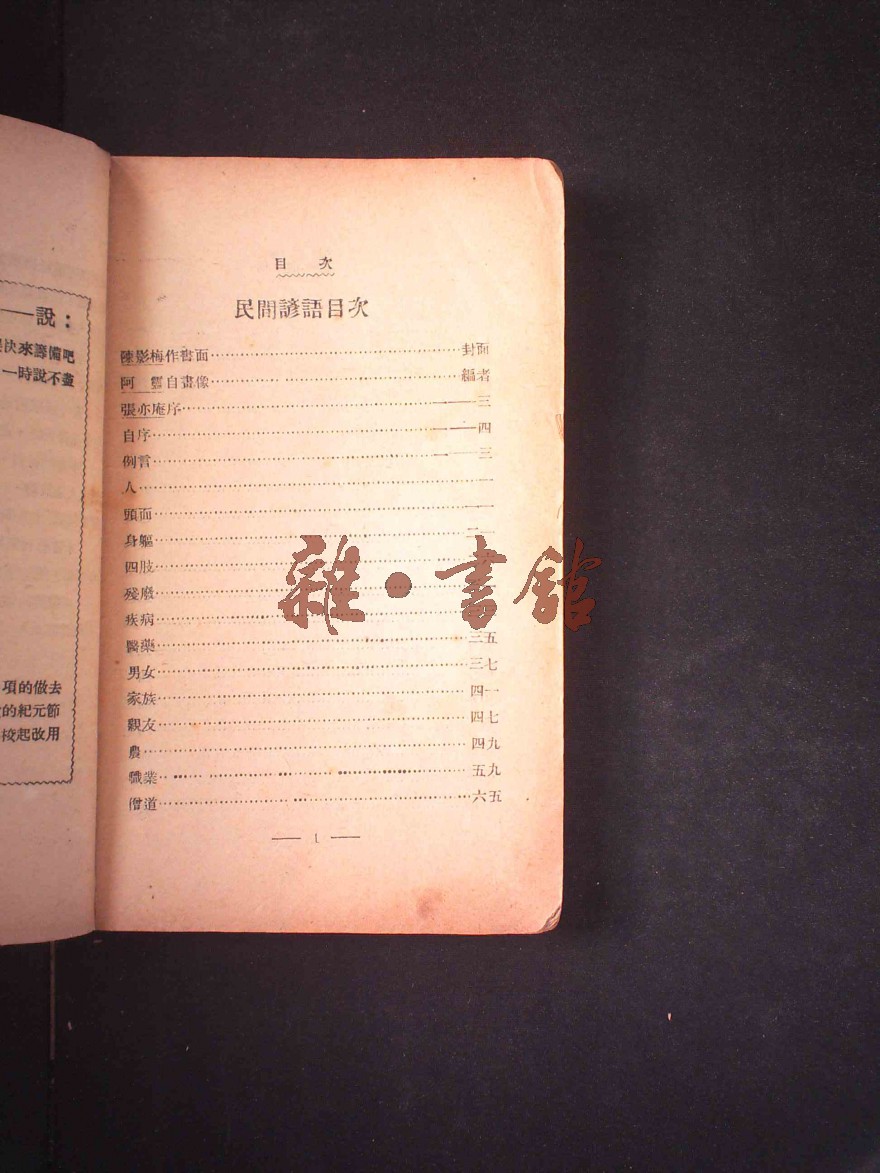 ——說：
快來籌備吧
一時說不盡
項的做去
的紀元節
校起改用
目 次
民間諺語目次
陳影梅作書面……封面
阿 自畫像……編者
張亦庵序……一——三
自序……一——四
例言……一——三
人……一
頭面……
身軀……
四肢……
殘廢……
疾病……
醫藥……三五
男女……三七
家族……四一
親友……四七
農……四九
職業……五九
僧道……六五
— 1 —
雜·書館